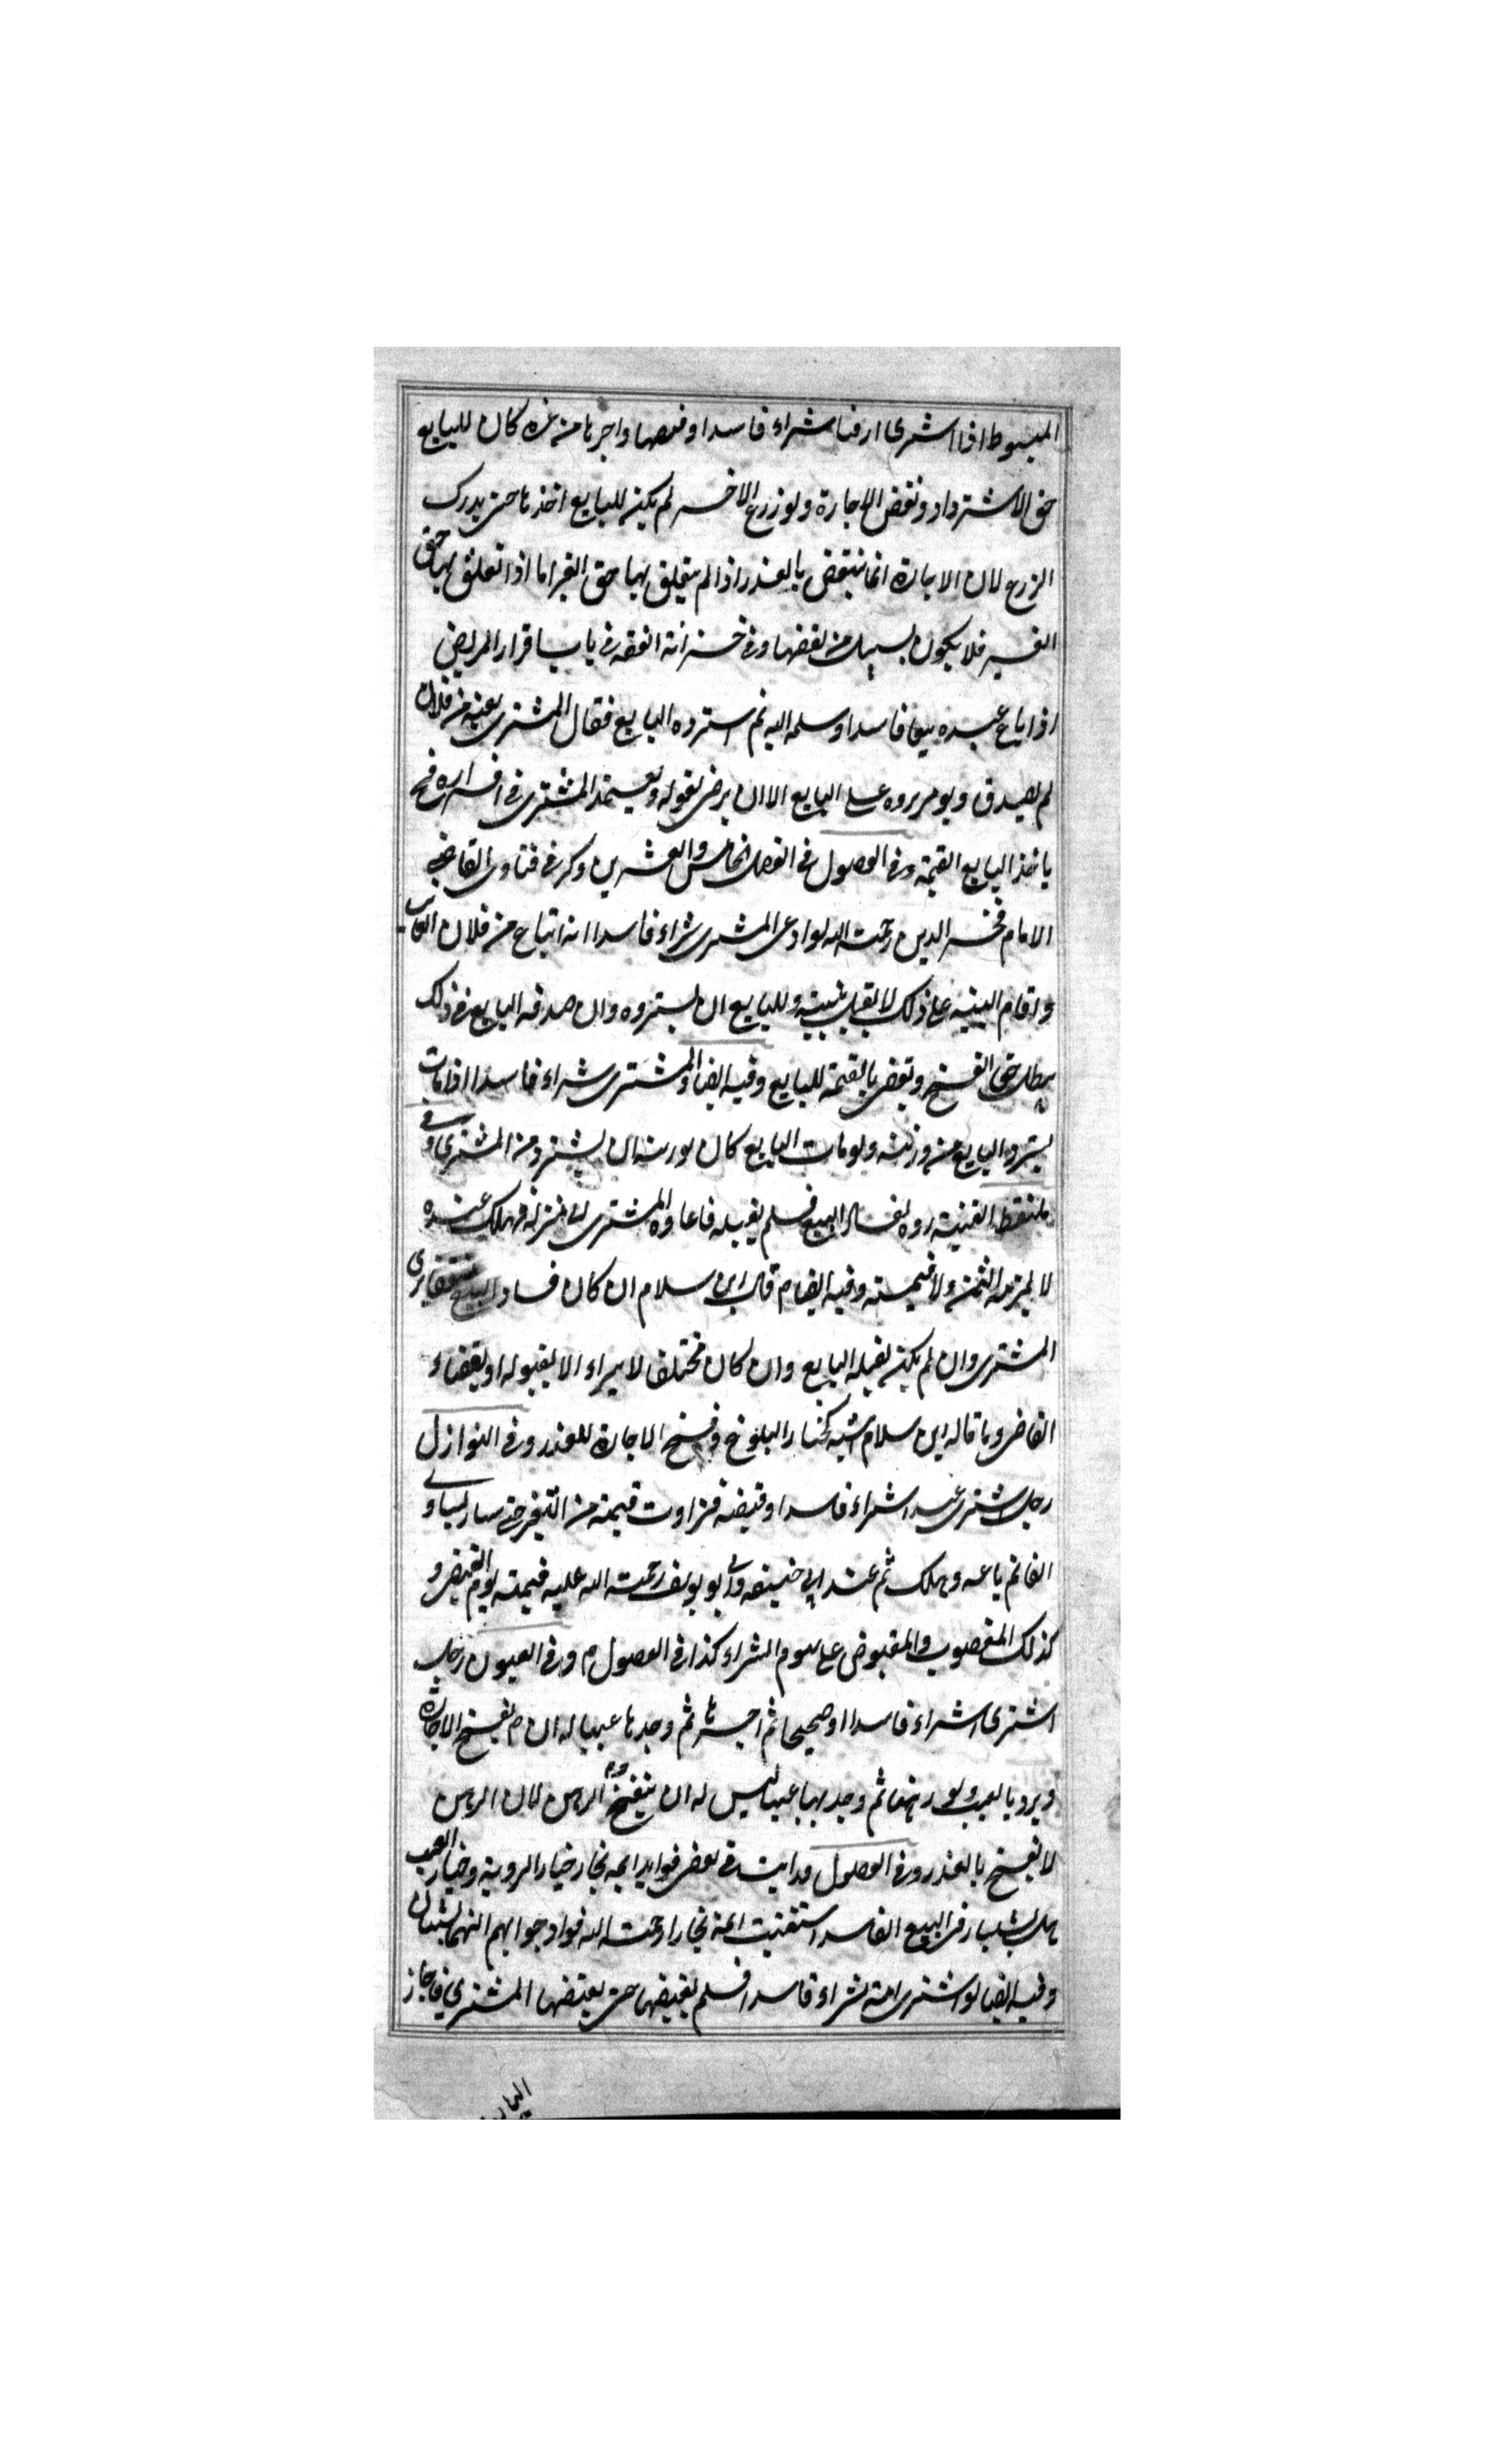 المبسوط اذا اشترى ارضا شراء فاسدا وقبضها واجرها من غيره كان للبايع
حق الاسترداد ونقض الاجارة ولو زرع الاخر لم يكن للبايع اخذها حتى يدرك
الزرع لان الاجارة انما ينتقض بالعذر اذا لم يتعلق بها حق الغير اما اذا تعلق بها حق
الغير فلا يكون بسبيل من نقضها وفي خزانة الفقه في باب اقرار المريض
اذا باع عبده بيعا فاسدا وسلمه اليه ثم استرده البايع فقال المشترى بعته من فلان
لم يصدق ويومر برده على البايع الا ان يرضى بقوله ويعتمد المشترى في اقراره فح
ياخذ البايع القيمة وفي الفصول في الفصل الخامس والعشرين ذكر في فتاوى القاضي
الامام فخر الدين رحمة الله لو ادعى المشترى شراء فاسدا انه ابتاع من فلان الغايب
واقام البينة على ذلك لا يقبل بينته وللبايع ان يسترده وان صدقه البايع في ذلك
بطل حق الفسخ ويقضى بالقيمة للبايع وفيه ايضا والمشترى شراء فاسدا اذا مات
يسترد البايع من ورثته ولو مات البايع كان لورثته ان يسترد من المشترى وفي
ملتقط القنية رده لفساد البيع فلم يقبله فاعاده المشترى الى منزله فهلك عنده
لا يلزمه الثمن ولا قيمته وفيه ايضا م قال ابن سلام ان كان فساد البيع
المشترى وان لم يكن يقبله البايع وان كان مختلفا لا يبراء الا بقبوله او بقضاء
القاضى وما قاله ابن سلام اشبه كخيار البلوغ وفسخ الاجارة للعذر وفي النوازل
رجل اشترى عبدا شراء فاسدا وقبضه فزادت قيمته من التغير حتى صار يساوي
الفا ثم باعه وهلك ثم عند ابي حنيفه وابي يوسف رحمة الله عليه قيمته يوم القبض و
كذلك المغصوب والمقبوض على سوم الشراء كذا في الفصول م وفي العيون رجل
اشترى شراء فاسدا او صحيحا ثم اجرها ثم وجد بها عيبا له ان يفسخ الاجارة
ويرد بالعيب ولو رهنها ثم وجد بها عيبا ليس له ان يفسخ الرهن لان الرهن
لا يفسخ بالعذر وفي الفصول ورايت في بعض فوايد ايمه بخارا خيار الروية وخيار العيب
هل يثبتان في البيع الفاسد استفتيت ايمة بخارا رحمة الله فورد جوابهم انهما يثبتان
وفيه ايضا لو اشترى امة شراء فاسدا فلم يقبضها حتى يعتقها المشترى فاجاز